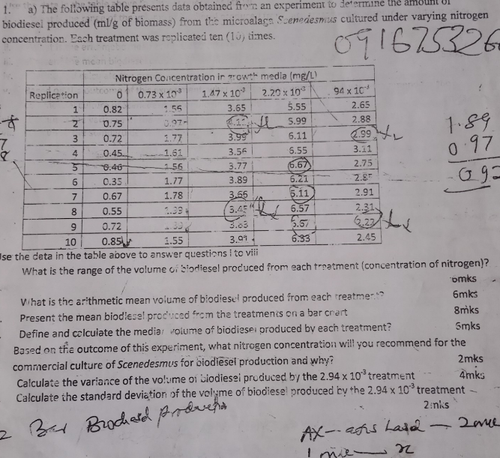 1. a) The following table presents data obtained from an experiment to determine the amount of
biodiesel produced (ml/g of biomass) from the microalgae Scenedesmus cultured under varying nitrogen
concentration. Each treatment was replicated ten (10) times.
091675326
Nitrogen Concentration in growth media (mg/L)
Replication 0 0.73 x 10⁻³ 1.47 x 10⁻³ 2.20 x 10⁻³ .94 x 10⁻³
1 0.82 1.56 3.65 5.55 2.65
2 0.75 0.97 5.99 2.88
3 0.72 1.77 3.99 6.11 2.99
4 0.45 1.61 3.56 6.55 3.11
5 0.46 1.56 3.77 6.67 2.75
6 0.35 1.77 3.89 6.21 2.87
7 0.67 1.78 3.66 6.11 2.91
8 0.55 3.45 6.57 2.31
9 0.72 2.22
10 0.85 1.55 6.33 2.45
1.89
0.97
0.92
Use the data in the table above to answer questions i to viii
What is the range of the volume of biodiesel produced from each treatment (concentration of nitrogen)?
6mks
What is the arithmetic mean volume of biodiesel produced from each treatment? 6mks
Present the mean biodiesel produced from the treatments on a bar chart 8mks
Define and calculate the median volume of biodiesel produced by each treatment? 6mks
Based on the outcome of this experiment, what nitrogen concentration will you recommend for the
commercial culture of Scenedesmus for biodiesel production and why? 2mks
Calculate the variance of the volume of biodiesel produced by the 2.94 x 10⁻³ treatment 4mks
Calculate the standard deviation of the volume of biodiesel produced by the 2.94 x 10⁻³ treatment
2mks